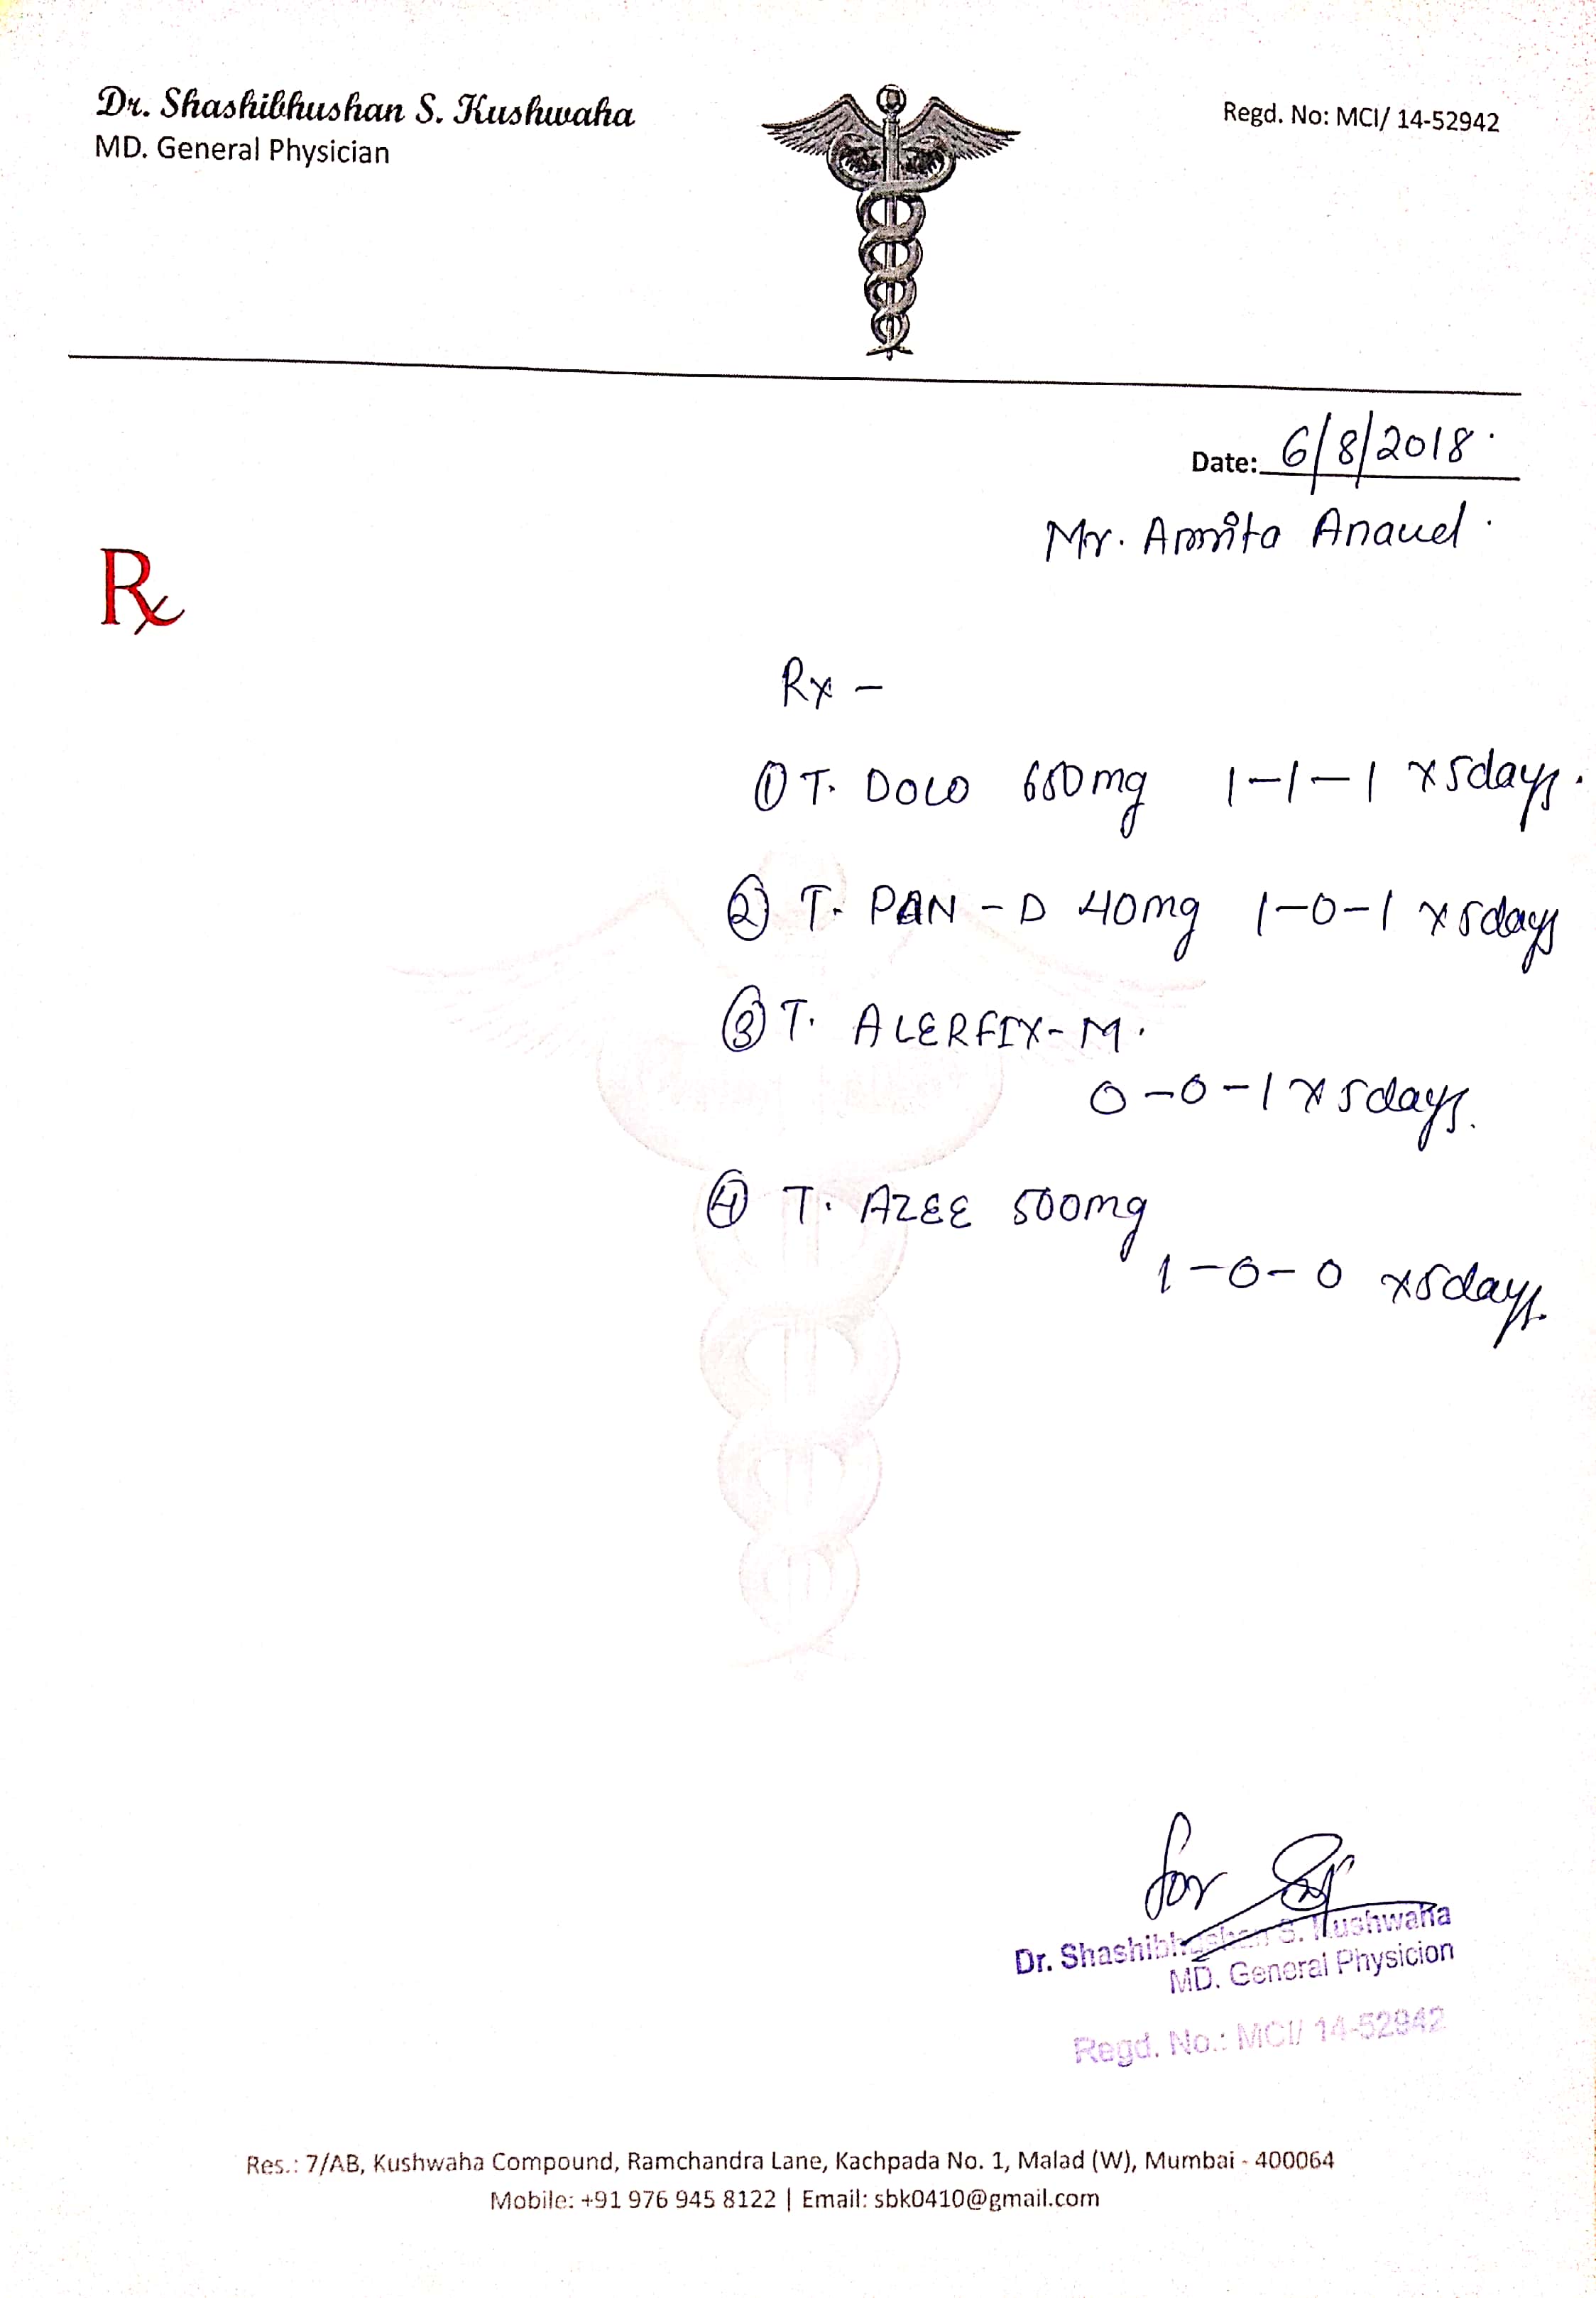 Dr. Shashibhushan S. Kushwaha
MD. General Physician
Regd. No: MCI/ 14-52942
Date: 6/8/2018
Mr. Ammita Anand
Rx
Rx -
① T. DOLO 650mg 1-1-1 x 5days.
② T. PAN-D 40mg 1-0-1 x 5days
③ T. ALERFIX-M.
0-0-1 x 5days.
④ T. AZEE 500mg
1-0-0 x 5days.
for
Dr. Shashibhushan S. Kushwaha
MD. General Physicion
Regd. No.: MCI/ 14-52942
Res.: 7/AB, Kushwaha Compound, Ramchandra Lane, Kachpada No. 1, Malad (W), Mumbai - 400064
Mobile: +91 976 945 8122 | Email: sbk0410@gmail.com